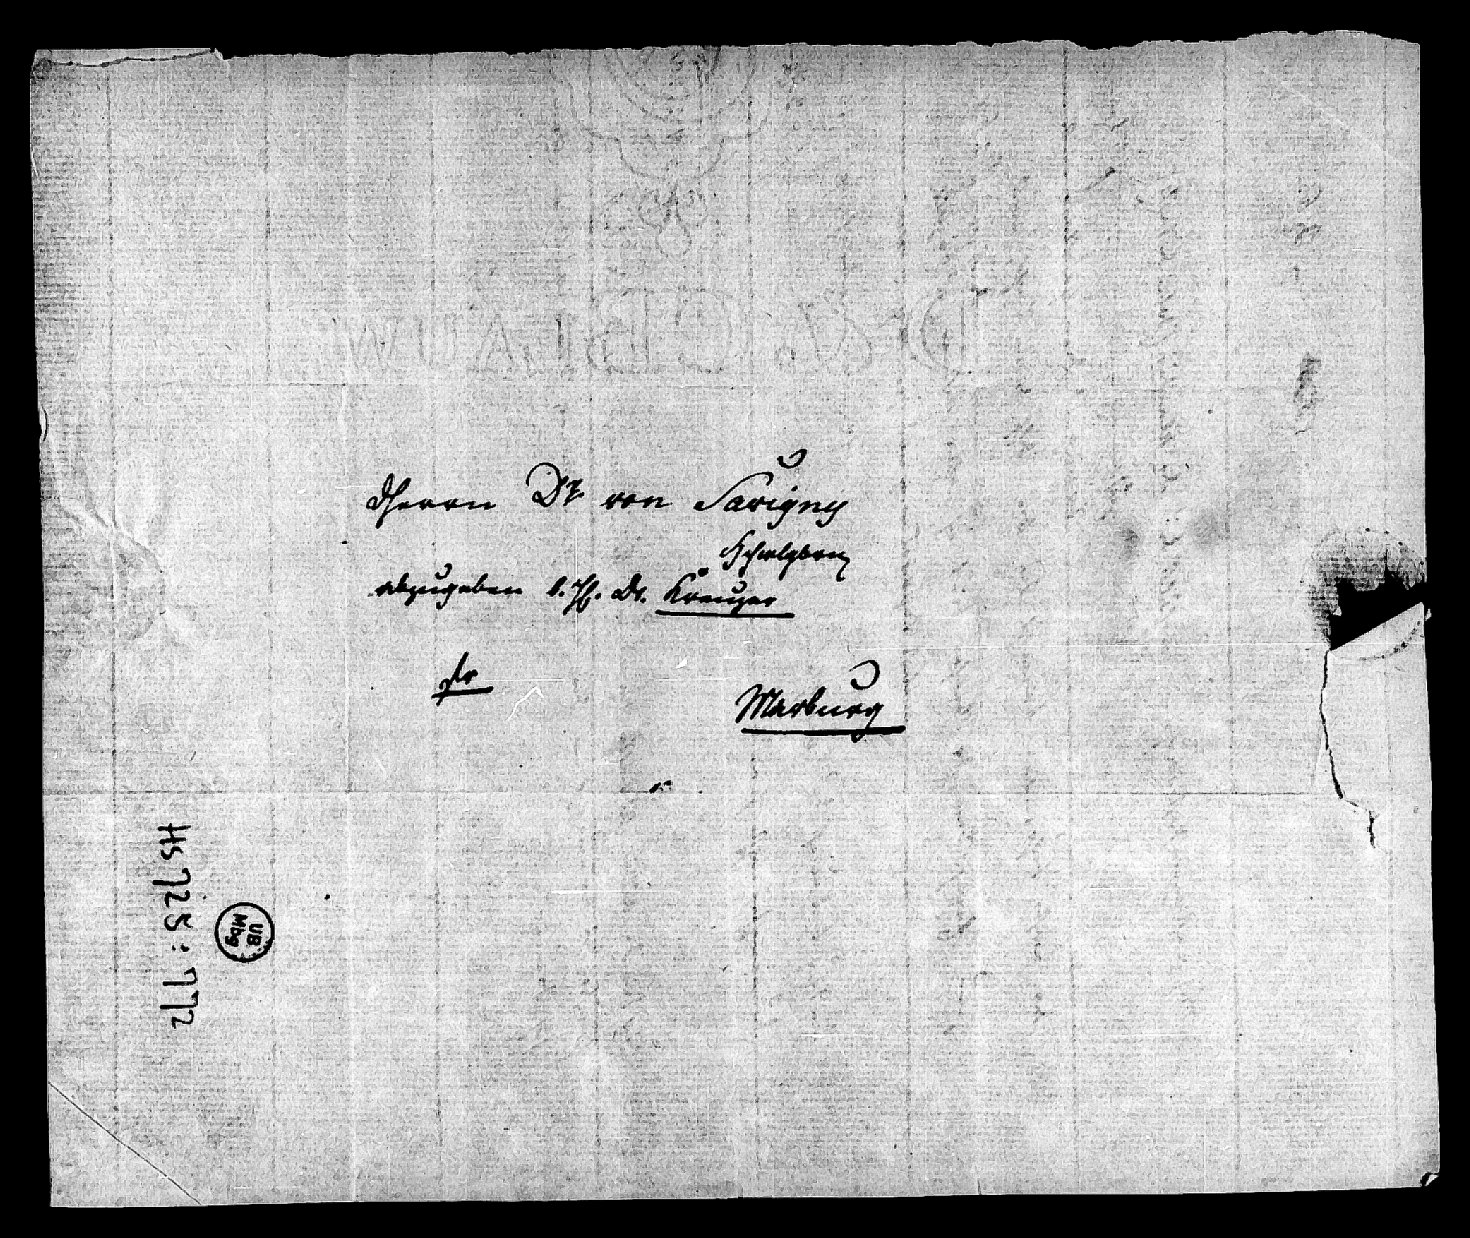 Herrn Dr. von Savigny
abzugeben b. H. Dr. Kreuzer
fr
Marburg
Hs 725 : 772
UB
Mbg